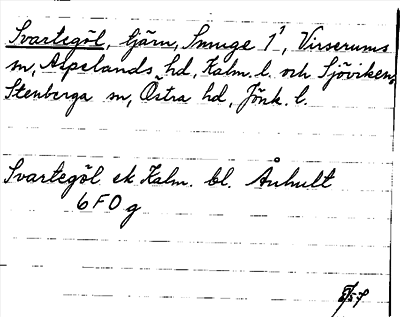 Svartegöl, tjärn, Smuge 1¹, Virserums
sn, Aspelands hd, Kalm. l. och Sjöviken,
Stenberga sn, Östra hd, Jönk. l.
Svartegöl ek Kalm. bl. Ånhult
6 F 0 g